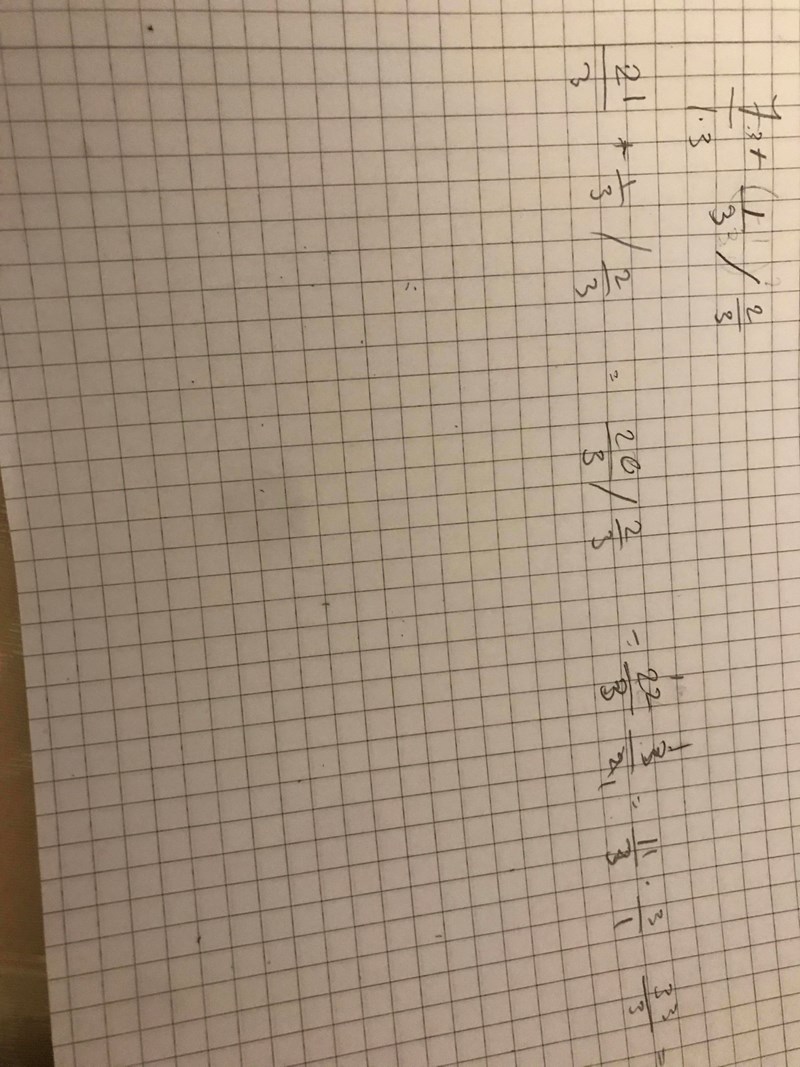 7·3/1·3 + (1/3 / 2/3
21/3 + 1/3 / 2/3 = 20/3 / 2/3 = 22/3 3/2 1 = 11/3 · 3/1 33/3 =